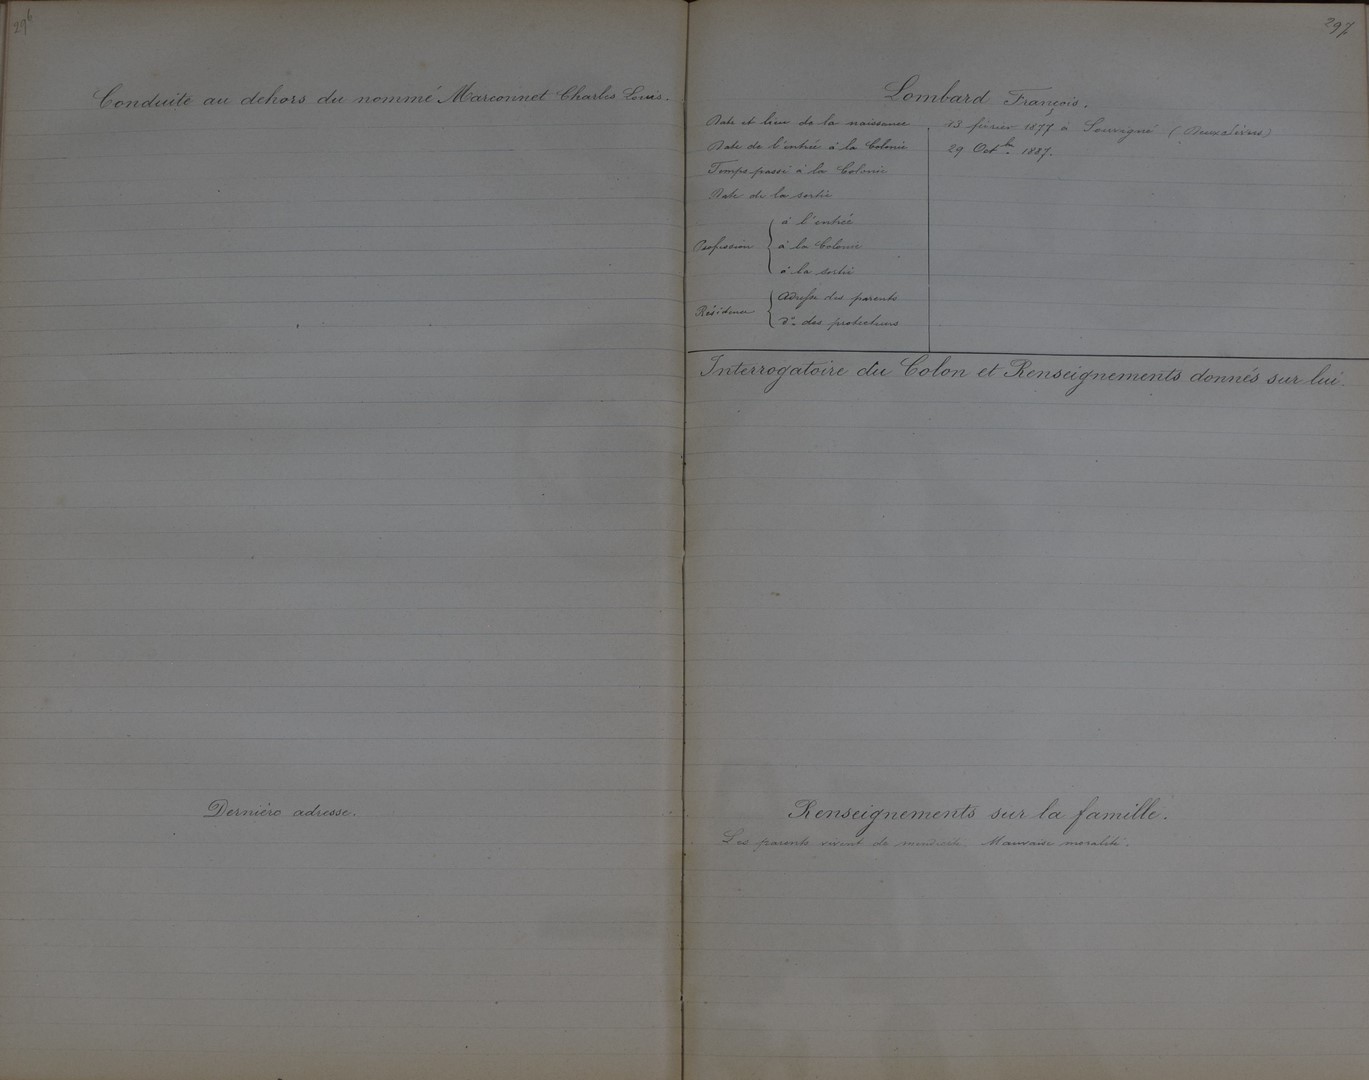 296
Conduite au dehors du nommé Marconnet Charles Louis.
Dernière adresse.
297
Lombard François.
Date et lieu de la naissance 13 février 1877 à Souvigné (Deux Sèvres)
Date de l'entrée à la Colonie 29 Octbre 1887.
Temps passé à la Colonie
Date de la sortie
Profession
à l'entrée
à la Colonie
à la sortie
Résidence
Adresse des parents
do des protecteurs
Interrogatoire du Colon et Renseignements donnés sur lui.
Renseignements sur la famille.
Les parents vivent de mendicité. Mauvaise moralité.